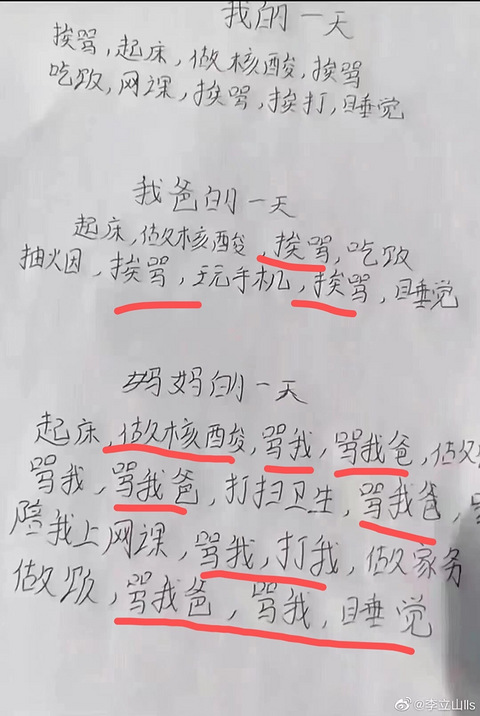 我的一天
挨骂,起床,做核酸,挨骂
吃饭,网课,挨骂,挨打,睡觉
我爸的一天
起床,做核酸,挨骂,吃饭
抽烟,挨骂,玩手机,挨骂,睡觉
妈妈的一天
起床,做核酸,骂我,骂我爸,做
骂我,骂我爸,打扫卫生,骂我爸,
陪我上网课,骂我,打我,做家务
做饭,骂我爸,骂我,睡觉
@李立山lls